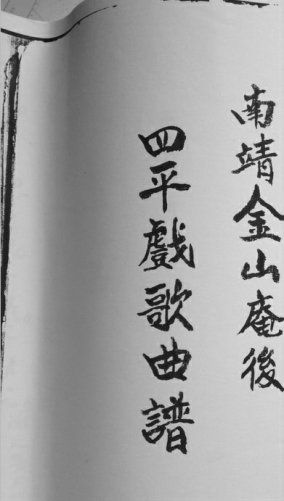 南靖金山庵後
四平戲歌曲譜